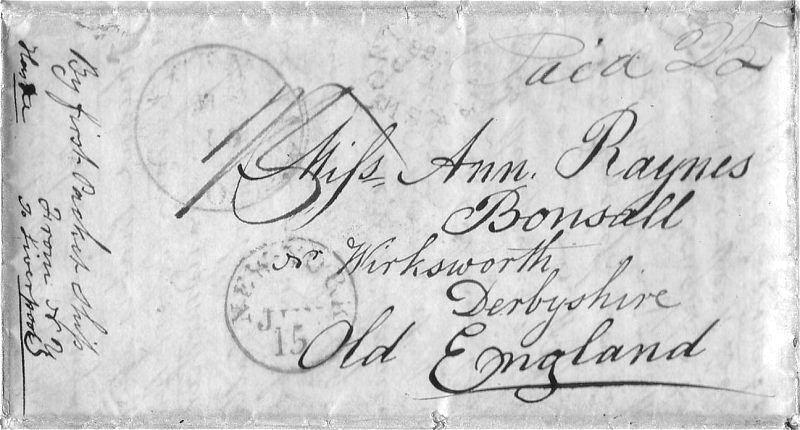 Paid 25
Miss Ann. Raynes
Bonsall
nr Wirksworth
Derbyshire
Old England
NEW-YORK
JUN
15
By first Packet Ship
From N Y
To Liverpool